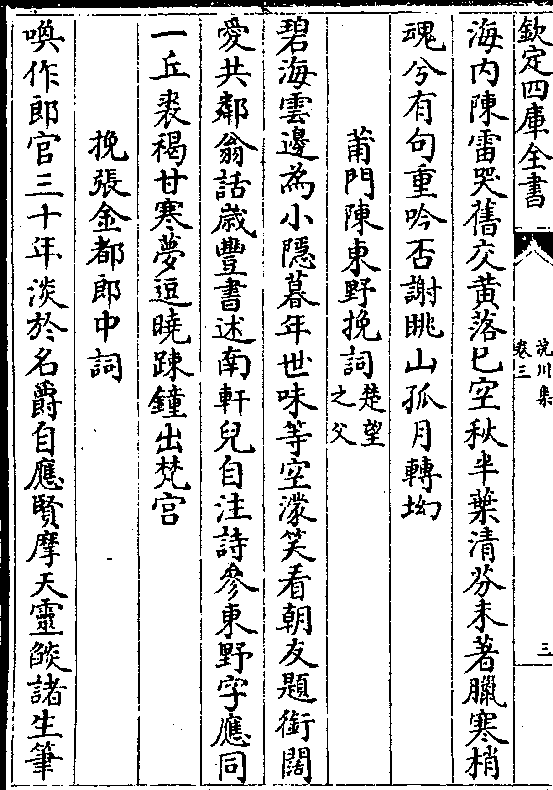 欽定四庫全書
卷三
三
海内陳雷哭舊交黄落已空秋半葉清芬未著臘寒梢
魂兮有句重吟否謝眺山孤月轉坳
莆門陳東野挽詞楚望之父
碧海雲邊為小隱暮年世味等空濛笑看朝友題銜闊
愛共鄰翁話歳豐書述南軒兒自注詩參東野字應同
一丘裘褐甘寒夢逗曉踈鐘出梵宫
挽張金都郎中詞
喚作郎官三十年淡於名爵自應賢摩天靈燄諸生筆